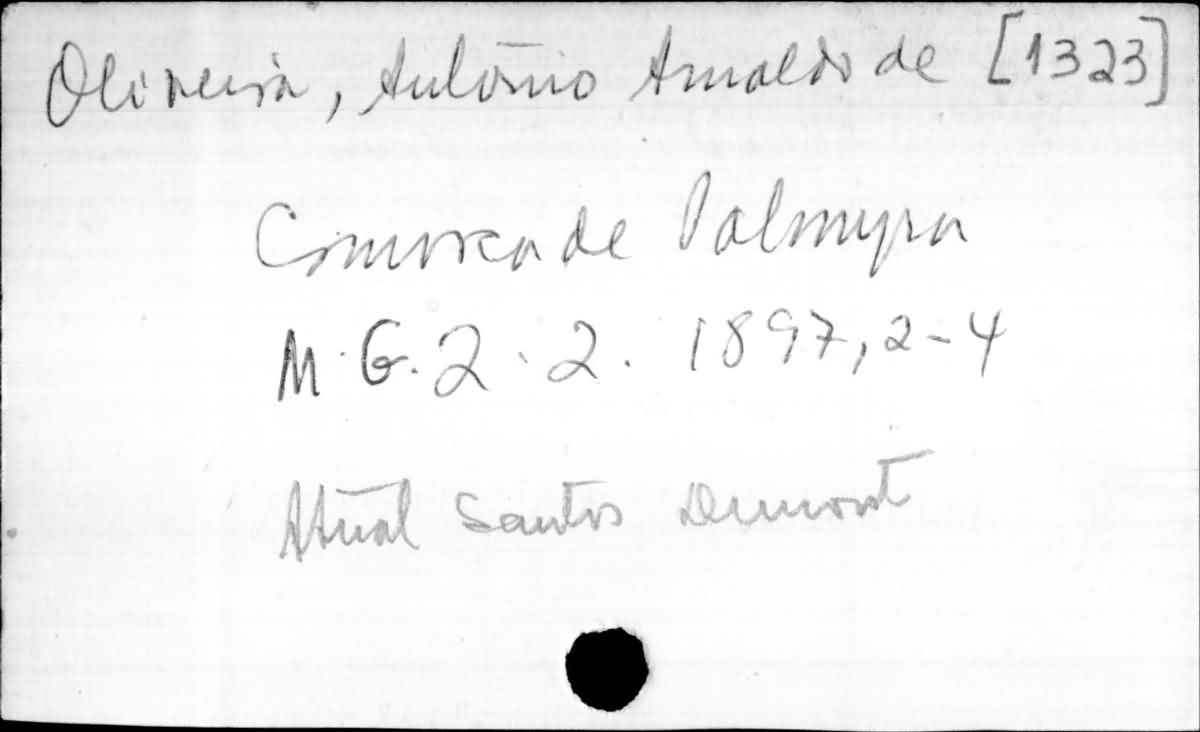 Oliveira, Antônio Arnaldo de [1323]
Comarca de Palmyra
M.G. 2.2. 1897, 2-4
Atual Santos Dumont